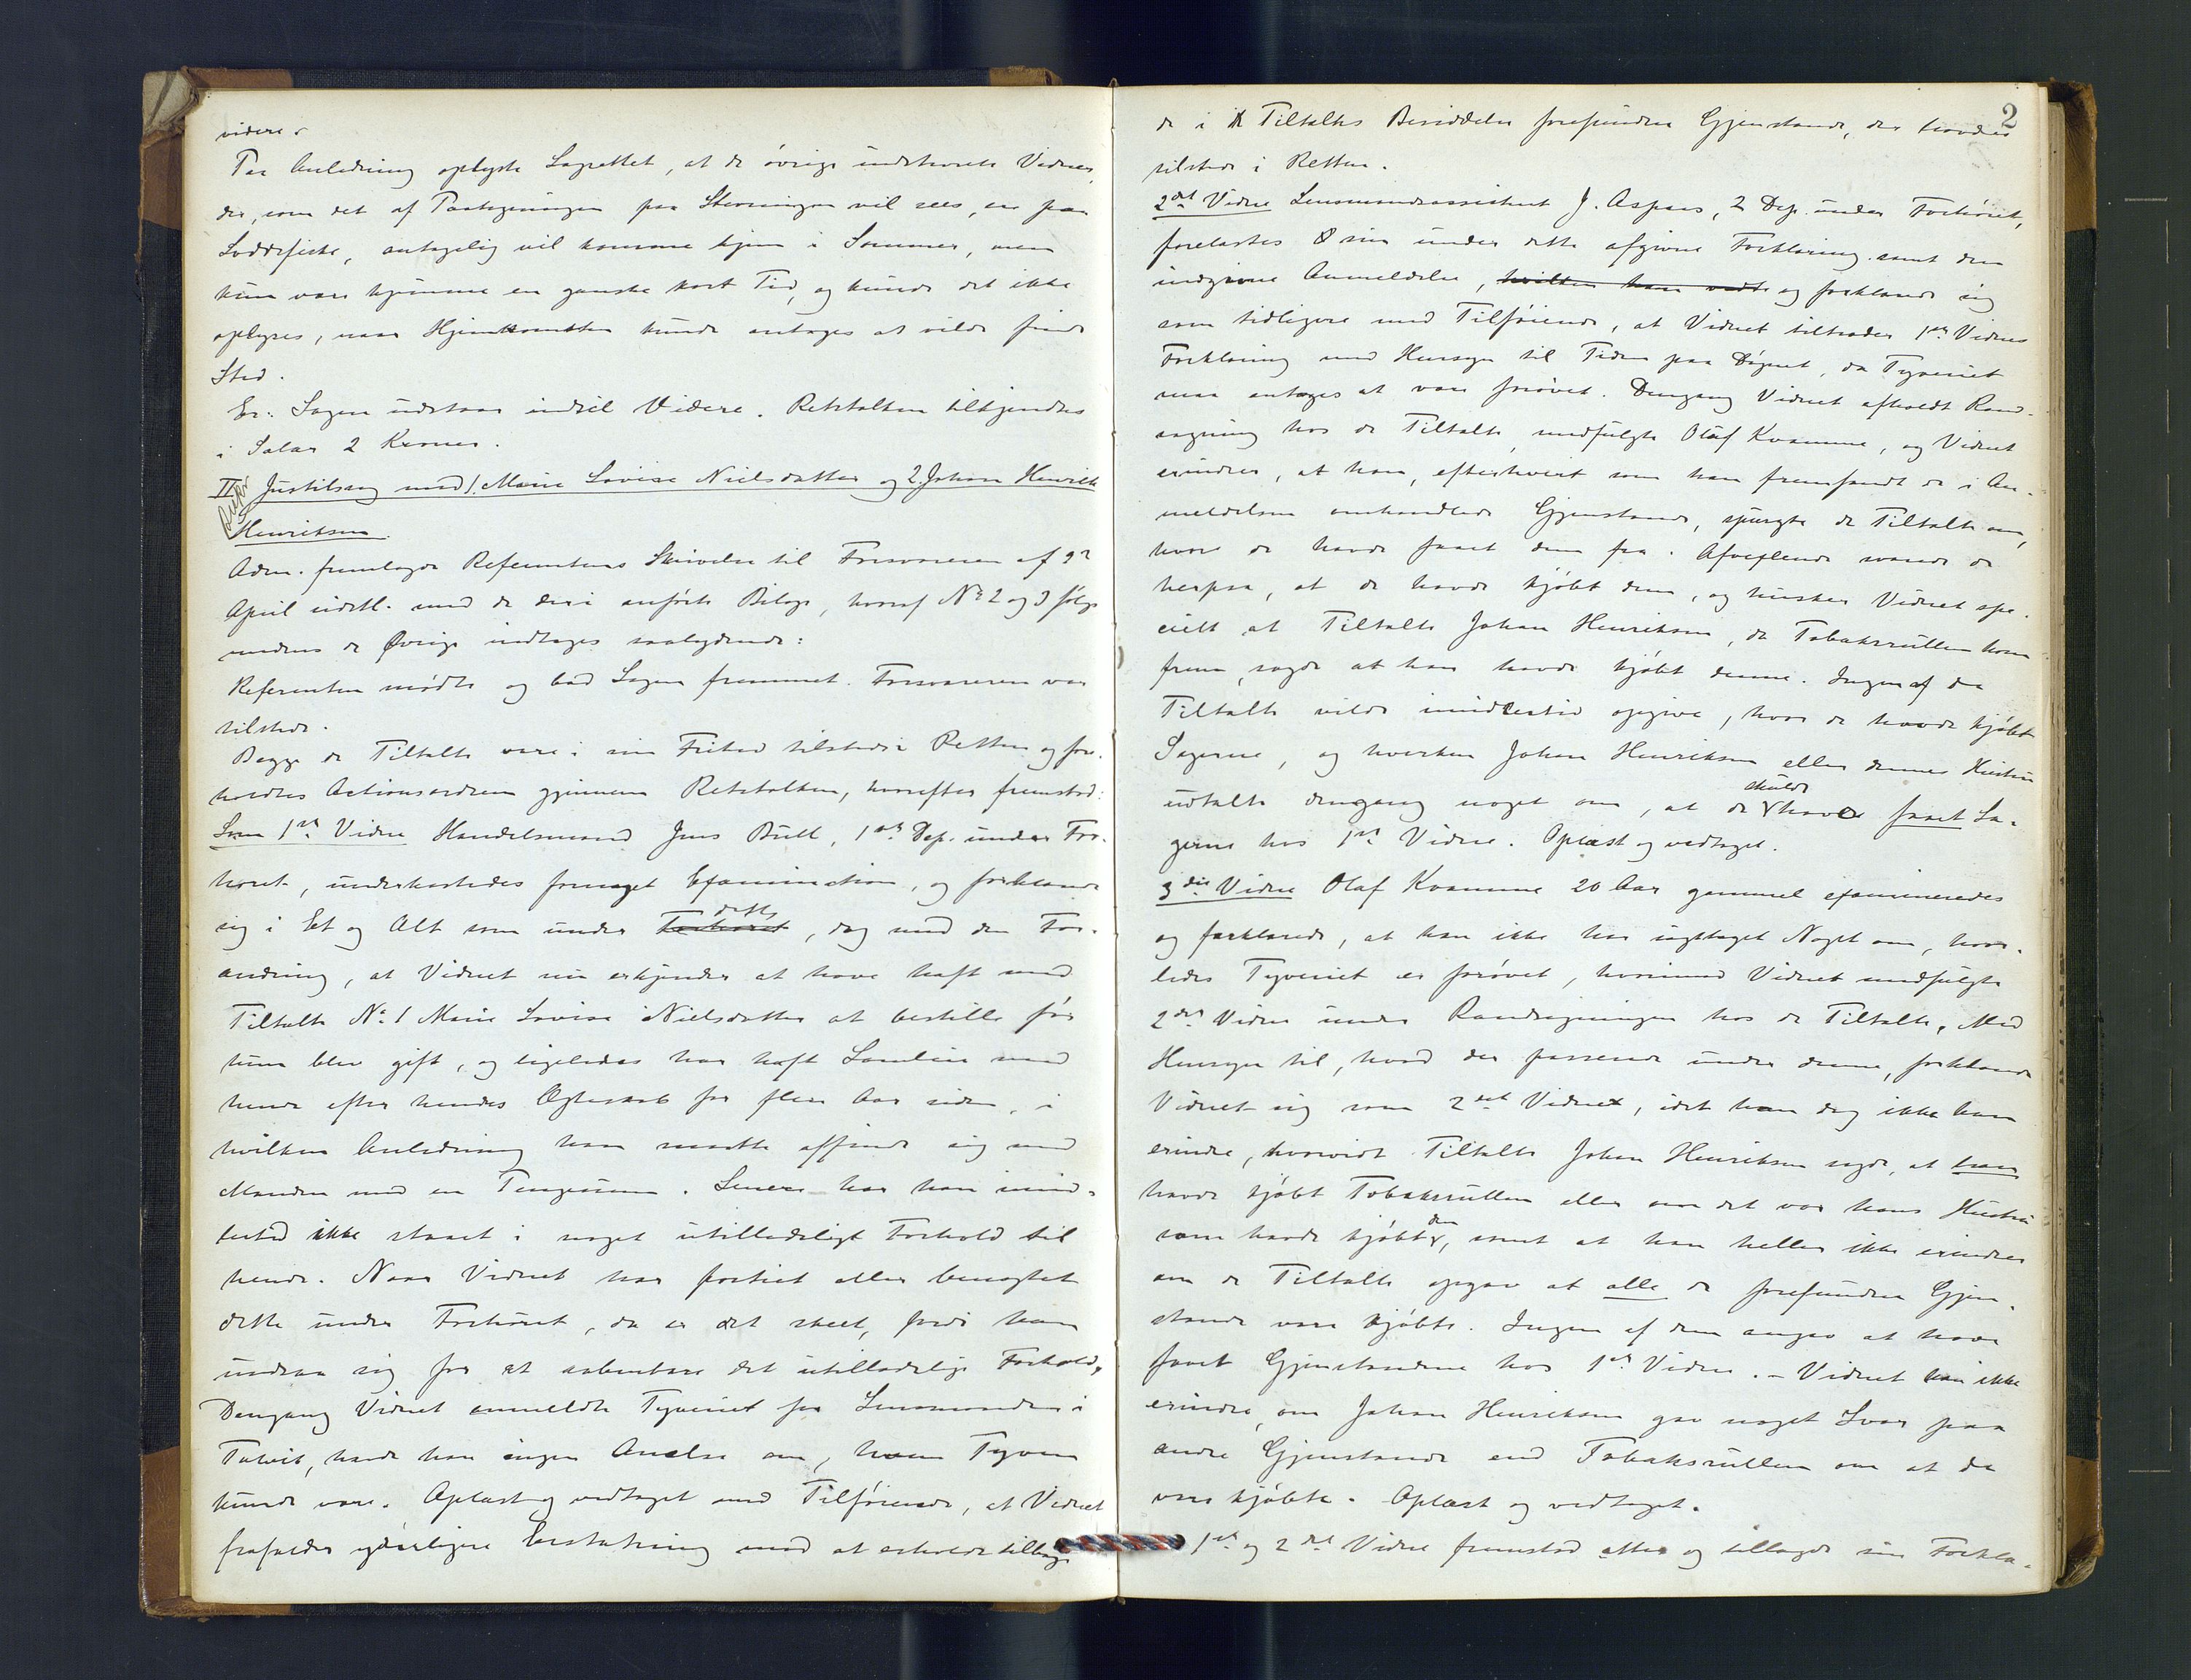 videre.
Paa Anledning oplyste Lagrettet, at de øvrige indstevnte Vidner,
der, som det af Paategningen paa Stevningen vil sees, er paa
Loddefiske, antagelig vil komme hjem i Sommer, men
kun være hjemme en ganske kort Tid, og kunde det ikke
oplyses, naar Hjemkomsten kunde antages at vilde finde
Sted.
Er: Sagen udstaar indtil Videre. Retsfolkene tilkjendtes
i Salær 2 Kroner.
II Justitssag mod 1. Marie Lovise Nielsdatter og 2. Johan Henrik
Henriksen.
Adm. fremlagde Referentens Skrivelse til Forsvareren af 9de
April sidstl. med de deri anførte Bilage, hvoraf No 2 og 3 følge
medens de Øvrige indtages saalydende:
Referenten mødte og bad Sagen fremmet. Forsvareren var
tilstede.
Begge de Tiltalte vare i sin Frihed tilstede i Retten og fore-
holdtes Actionsordren gjennem Retstolken, hvorefter fremstod:
Som 1ste Vidne Handelsmand Jens Bull, 1ste Dep. under For-
høret, underkastedes fornyet Examination, og forklarede
sig i Et og Alt som under Forhøret dette, dog med den For-
andring, at Vidnet nu erkjender at have haft med
Tiltalte No. 1 Marie Lovise Nielsdatter at bestille før
hun blev gift, og ligeledes har haft Samleie med
hende efter hendes Ægteskab for flere Aar siden, i
hvilken Anledning han maatte affinde sig med
Manden med en Pengesum. Senere har han imid-
lertid ikke staaet i noget utilladeligt Forhold til
hende. Naar Vidnet har fortiet eller benægtet
dette under Forhøret, da er det skeet, fordi han
undsaa sig for at aabenbare det utilladelige Forhold.
Dengang Vidnet anmeldte Tyveriet for Lensmanden i
Talvik, havde han ingen Anelse om, hvem Tyven
kunde være. Oplæst og vedtaget med Tilføiende, at Vidnet
frafalder yderligere Erstatning mod at erholde tilbage
2
de i Tiltaltes Besiddelse forefundne Gjenstande, der havdes
tilstede i Retten.
2det Vidne Lensmandsassistent J. Aspaas, 2 Dep. under Forhøret,
forelæstes sin under dette afgivne Forklaring samt den
indgivne Anmeldelse, hvilken han vedt og forklarede sig
som tidligere med Tilføiende, at Vidnet tiltræder 1ste Vidnes
Forklaring med Hensyn til Tiden paa Døgnet, da Tyveriet
maa antages at være forøvet. Dengang Vidnet afholdt Rand-
sagning hos de Tiltalte, medfulgte Olaf Kvamme, og Vidnet
erindrer, at han, efterhvert som han fremfandt de i An-
meldelsen omhandlede Gjenstande, spurgte de Tiltalte om,
hvor de havde faaet dem fra. Afvexlende svarede de
herpaa, at de havde kjøbt dem, og husker Vidnet spe-
cielt at Tiltalte Johan Henriksen, da Tobaksrullen kom
frem, sagde at han havde kjøbt denne. Ingen af de
Tiltalte vilde imidlertid opgive, hvor de havde kjøbt
Sagerne, og hverken Johan Henriksen eller dennes Hustru
udtalte dengang noget om, at de skulde have faaet Sa-
gerne hos 1ste Vidne. Oplæst og vedtaget.
3die Vidne Olaf Kvamme 20 Aar gammel examineredes
og forklarede, at han ikke har iagttaget Noget om, hvor-
ledes Tyveriet er forøvet, hvorimod Vidnet medfulgte
2det Vidne under Randsagningen hos de Tiltalte. Med
Hensyn til, hvad der passerede under denne, forklarede
Vidnet sig som 2det Vidne, idet han dog ikke kan
erindre, hvorvidt Tiltalte Johan Henriksen sagde, at han
havde kjøbt Tobaksrullen eller om det var hans Hustru
som havde kjøbt den, samt at han heller ikke erindrer
om de Tiltalte opgav at alle de forefundne Gjen-
stande vare kjøbte. Ingen af dem angav at have
faaet Gjenstandene hos 1ste Vidne. – Vidnet kan ikke
erindre, om Johan Henriksen gav noget Svar paa
andre Gjenstande end Tobaksrullen om at de
vare kjøbte. Oplæst og vedtaget.
1ste og 2det Vidne fremstod atter og tillagde sin Forkla-